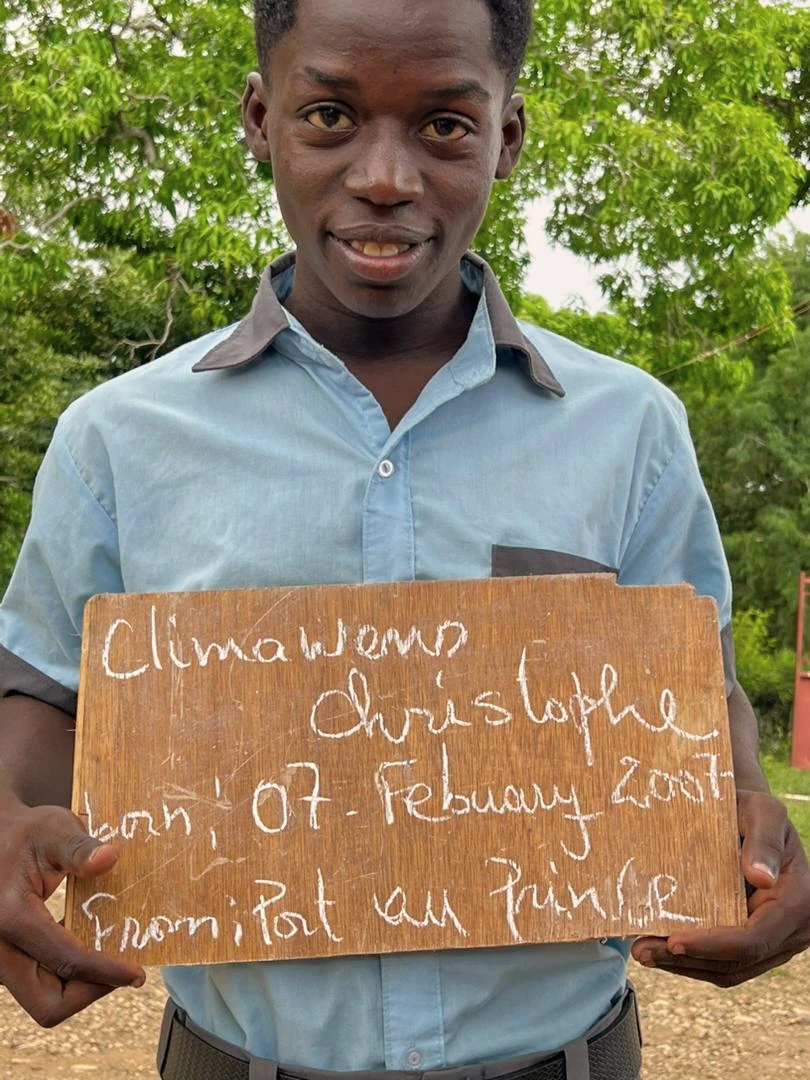 Clima Wens
Christophe
born; 07 - Febuary 2007
From; Port au Prince